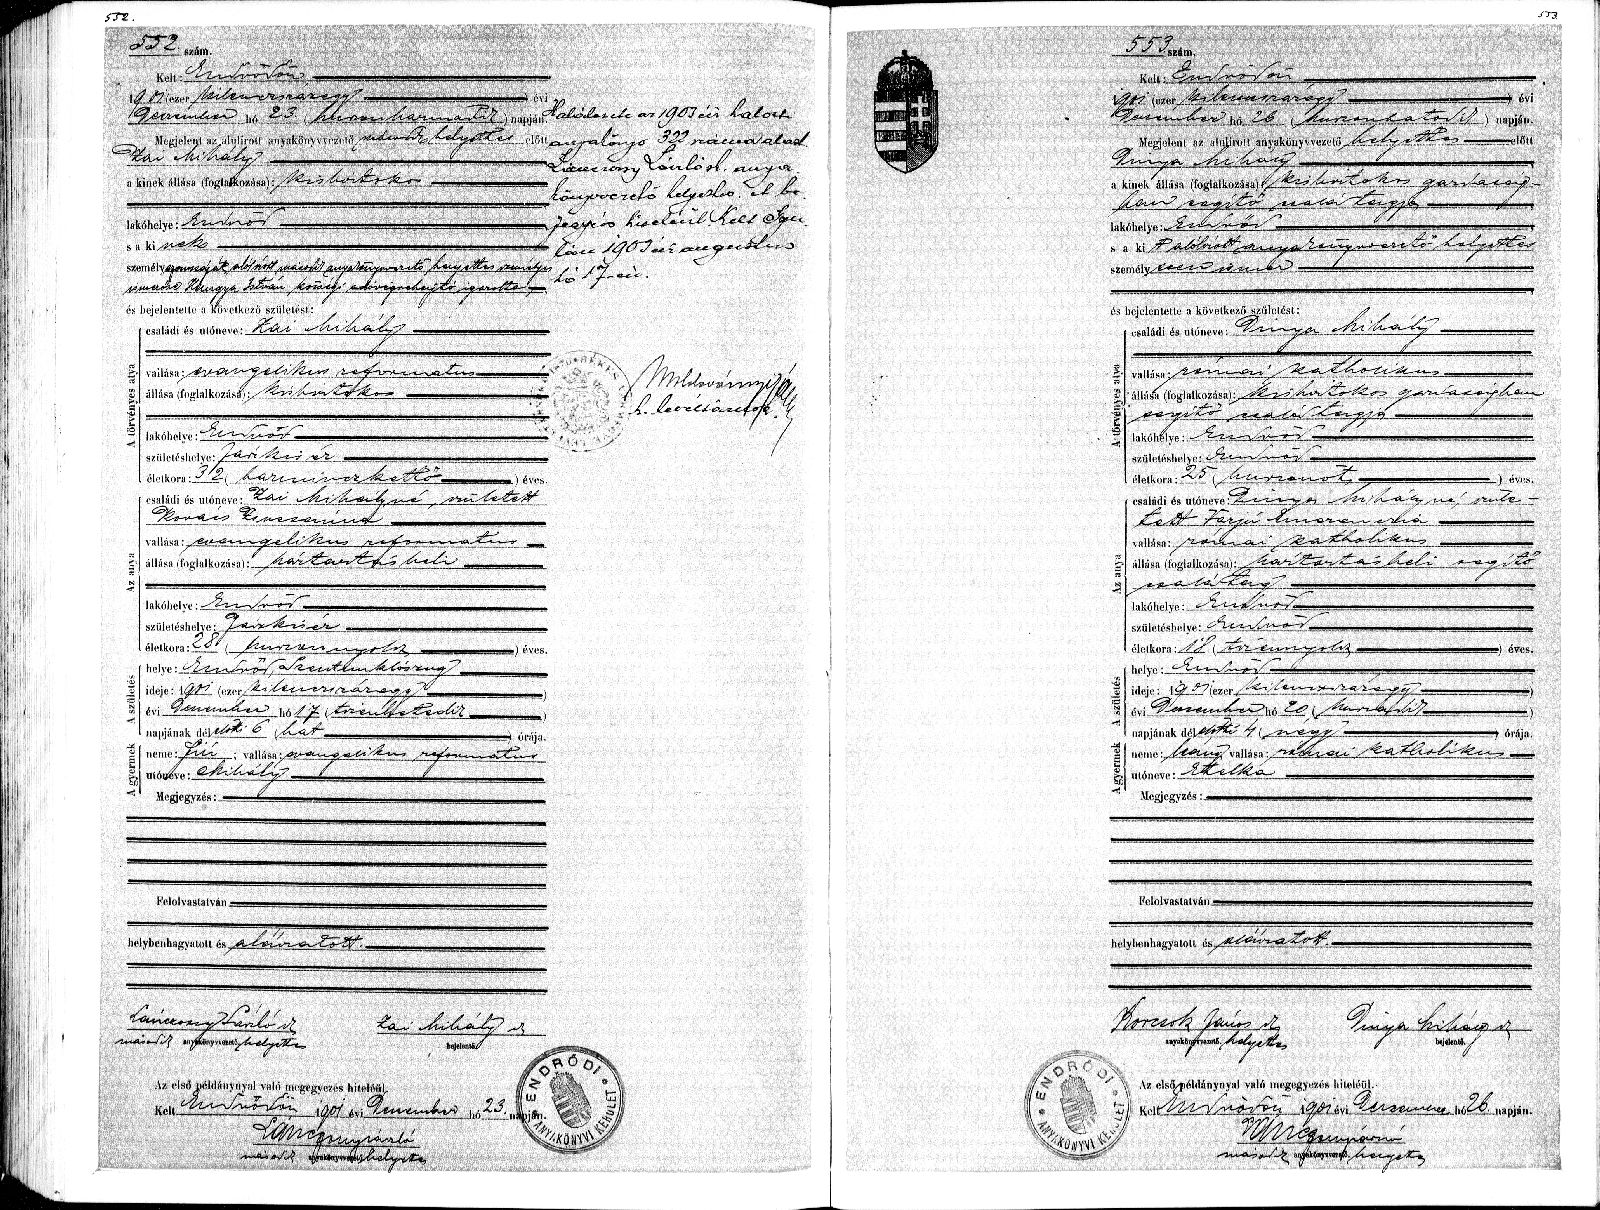 552.
552 szám.
Kelt: Endrődön
1901 (ezer kilenczszázegy) évi
December hó 23 (huszonharmadik) napján
Megjelent az alulirott anyakönyvvezető második helyettes előtt
Zai Mihály
a kinek állása (foglalkozása): kisbirtokos
lakóhelye: Endrőd
s a kinek
személyazonosságát, alólirott második anyakönyvvezető helyettes személyes
Hunya István községi adóvégrehajtó igazolta,
és bejelentette a következő születést:
A törvényes atya
családi és utóneve: Zai Mihály
vallása: evangelikus reformatus
állása (foglalkozása): kisbirtokos
lakóhelye: Endrőd
születéshelye: Jászkisér
életkora: 32 (harminczkettő) éves.
Az anya
családi és utóneve: Zai Mihályné, született
Kovács Zsuzsánna
vallása: evangelikus reformatus
állása (foglalkozása): háztartásbeli
lakóhelye: Endrőd
születéshelye: Jászkisér
életkora: 28 (huszonnyolcz) éves.
A születés
helye: Endrőd, Szentmiklószug
ideje: 1901 (ezer kilenczszázegy)
évi December hó 17 (tizenhetedik)
napjának dél előtti 6 (hat) órája.
A gyermek
neme: fiú; vallása: evangelikus reformatus
utóneve: Mihály
Megjegyzés:
Felolvastatván
helybenhagyatott és aláiratott.
Lánczossy László sk Zai Mihály sk
második anyakönyvvezető helyettes bejelentő.
Az első példánynyal való megegyezés hiteléül.
Kelt Endrődön 1901 évi December hó 23 napján.
Lánczossy László
második anyakönyvvezető helyettes
ENDRŐDI ANYAKÖNYVI KERÜLET
Halálesete az 1903 évi halotti
anyakönyv 322 száma alatt.
Lánczossy László sk. anya-
könyvvezető helyettes. E be-
jegyzés hiteléül. Kelt Gyu-
lán 1903 évi augusztus
hó 17-én.
h. levéltárnok
553
553 szám.
Kelt: Endrődön
1901 (ezer kilenczszázegy) évi
December hó 26 (huszonhatodik) napján.
Megjelent az alulirott anyakönyvvezető helyettes előtt
Dinya Mihály
a kinek állása (foglalkozása): kisbirtokos gazdaság-
ban segitő családtagja
lakóhelye: Endrőd
s a kit alólirott anyakönyvvezető helyettes
személyesen ismer
és bejelentette a következő születést:
A törvényes atya
családi és utóneve: Dinya Mihály
vallása: római katholikus
állása (foglalkozása): kisbirtokos gazdaságban
segitő családtagja
lakóhelye: Endrőd
születéshelye: Endrőd
életkora: 25 (huszonöt) éves.
Az anya
családi és utóneve: Dinya Mihályné, szüle-
tett Varjú Emerenczia
vallása: római katholikus
állása (foglalkozása): háztartásbeli segítő
családtag
lakóhelye: Endrőd
születéshelye: Endrőd
életkora: 18 (tizennyolcz) éves.
A születés
helye: Endrőd
ideje: 1901 (ezer kilenczszázegy)
évi December hó 20 (huszadik)
napjának dél előtti 4 (négy) órája.
A gyermek
neme: leány vallása: római katholikus
utóneve: Etelka
Megjegyzés:
Felolvastatván
helybenhagyatott és aláiratott.
Korcsok János sk Dinya Mihály sk
anyakönyvvezető helyettes bejelentő.
Az első példánynyal való megegyezés hiteléül.
Kelt Endrődön 1901 évi December hó 26 napján.
Lánczossy László
második anyakönyvvezető helyettes
ENDRŐDI ANYAKÖNYVI KERÜLET